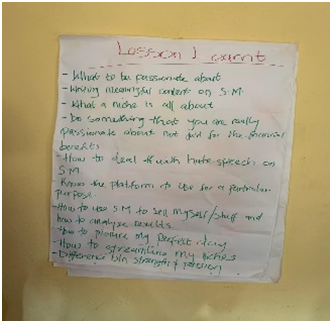 Lesson Learnt
- What to be passionate about
- Writing meaningful content on S.M
- What a niche is all about
- Do something that you are really
passionate about not just for the financial
benefits
- How to deal with hate-speech on
S.M
- Know the platform to use for a particular
purpose.
- How to use S.M to sell myself/staff and
how to analyse results.
- How to picture my perfect day
- How to streamline my niches
- Difference b/n strength & passion